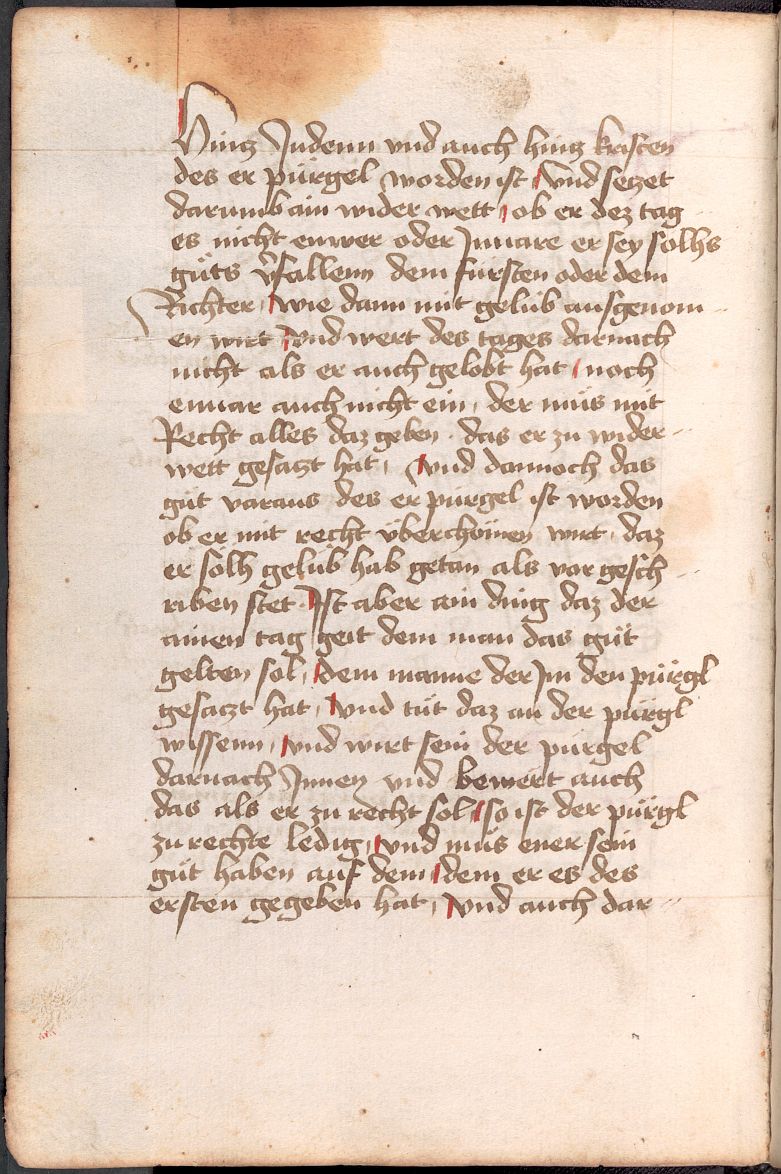 Hintz Juden vnd auch hintz kristen
des er pürgel worden ist / vnd setzet
darumb ain wider wett / ob er dez tag
es nicht enwer oder Innare er sey solhs
güts v̉fallenn dem fürsten oder dem
Richter / wie dann mit gelüb ausgenom
en wirt / vnd wert des tages darnach
nicht als er auch gelobt hat / noch
ennar auch nicht ein / der müs mit
Recht alles daz geben · das er zu wider
wett gesatzt hat / vnd dannoch das
güt voraus des er pürgel ist worden
ob er mit recht überchömen wirt / daz
er solh gelüb hab getan als vor gesch
riben stet · Ist aber ain ding daz der
ainen tag geit dem man das güt
gelten sol / dem manne der Im den pürgl
gesaczt hat / vnd tüt daz an der pürgl
wissenn / vnd wirt sein der pürgel
darnach Innen vnd bewert auch
das als er zu recht sol / so ist der pürgl
zu rechte ledig / vnd müs ener sein
güt haben auf dem / dem er es des
ersten gegeben hat / vnd auch dar